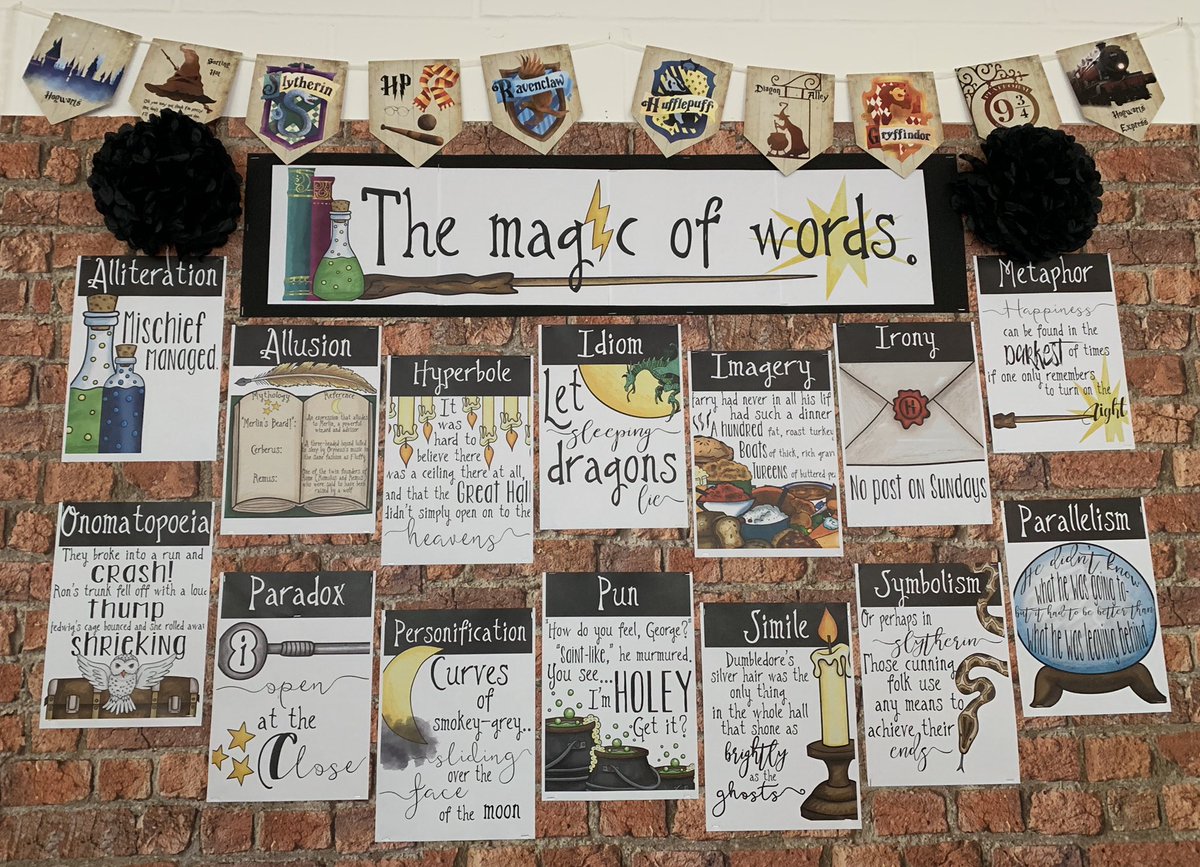 Hogwarts
Sorting
Hat
Slytherin
HP
Ravenclaw
Hufflepuff
Diagon
Alley
Gryffindor
9 3/4
Hogwarts
Express
The magic of words.
Alliteration
Mischief
managed.
Allusion
Mythology
Reference
"Merlin's Beard!":
An expression that alludes
to Merlin, a powerful
wizard and advisor
Cerberus:
A three-headed hound lulled
to sleep by Orpheus's music in
the same fashion as Fluffy
Remus:
One of the twin founders of
Rome (Romulus and Remus)
who were said to have been
raised by a wolf
Hyperbole
It
was
hard to
believe there
was a ceiling there at all,
and that the Great Hall
didn't simply open on to the
heavens
Idiom
Let
sleeping
dragons
lie
Imagery
Harry had never in all his life
had such a dinner
A hundred
fat, roast turkeys
Boats of thick, rich gravy
Tureens of buttered peas
Irony
H
No post on Sundays
Metaphor
Happiness
can be found in the
Darkest of times
if one only remembers
to turn on the
light
Onomatopoeia
They broke into a run and
crash!
Ron's trunk fell off with a loud
thump
Hedwig's cage bounced and she rolled away
shrieking
Paradox
i
open
at the
Close
Personification
Curves
of
smokey-grey..
sliding
over the
face
of the moon
Pun
"How do you feel, George?"
"Saint-like," he murmured.
You see...
I'm HOLEY
Get it?
Simile
Dumbledore's
silver hair was the
only thing
in the whole hall
that shone as
brightly
as the
ghosts
Symbolism
Or perhaps in
Slytherin
Those cunning
folk use
any means to
achieve their
ends
Parallelism
He didn't know
what he was going to-
but it had to be better than
what he was leaving behind